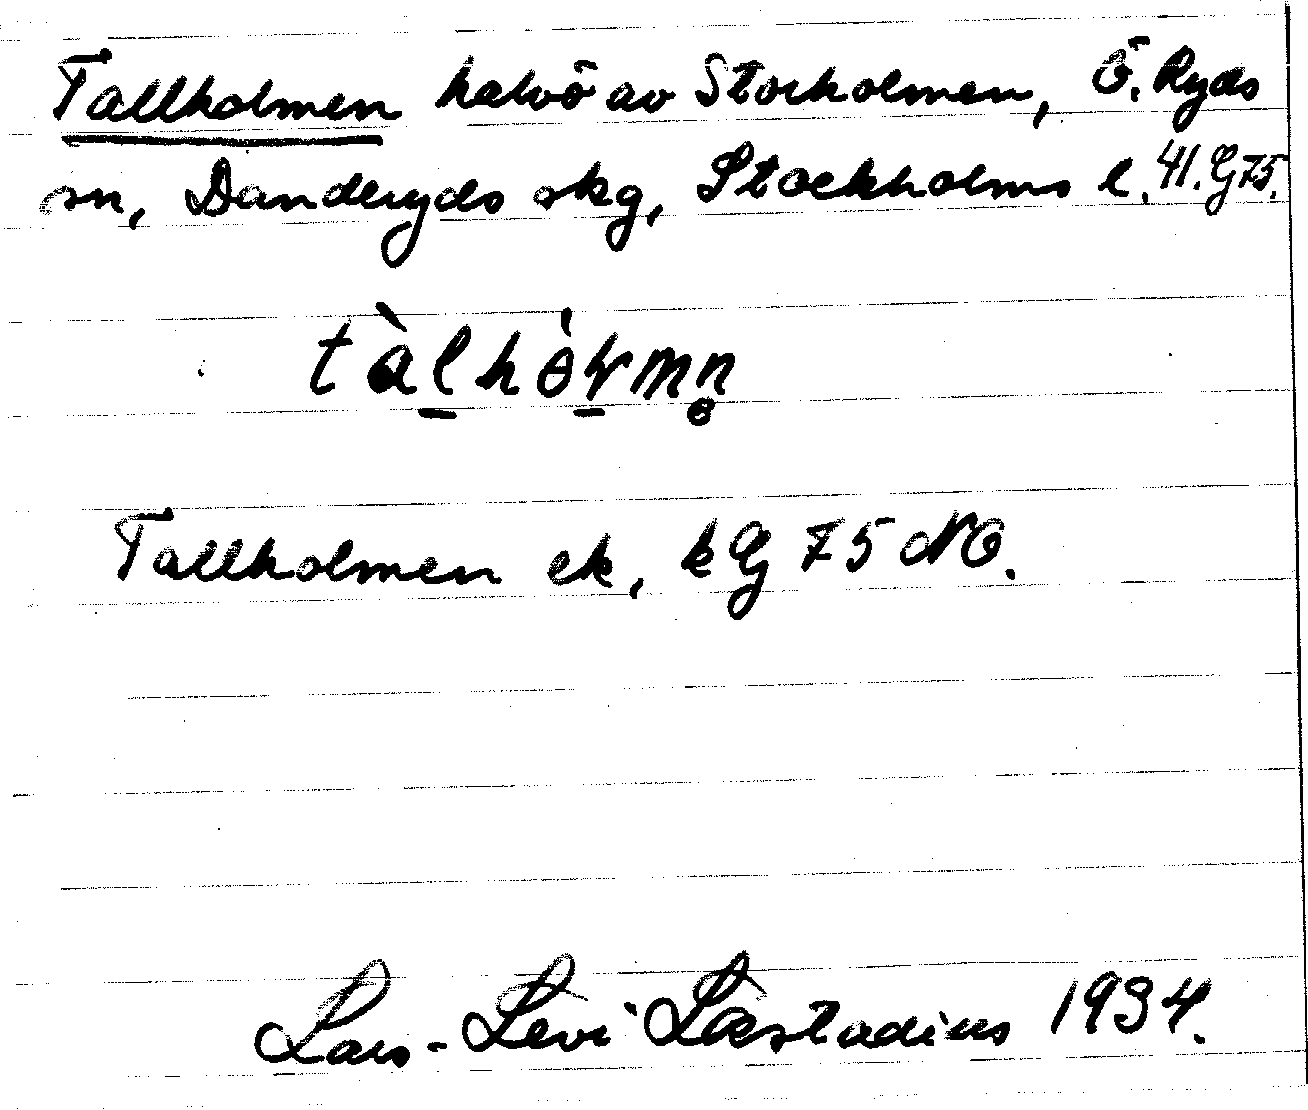 Tallholmen halvö av Storholmen, Ö. Ryds
sn, Danderyds skg, Stockholms l. 41. G 75.
Tallholmen ek, kG 75 NO.
Lars-Levi Læstadius 1934.